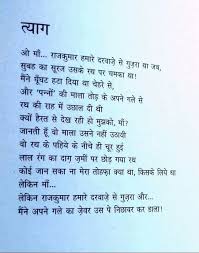 त्याग
ओ माँ... राजकुमार हमारे दरवाज़े से गुज़रा था जब,
सुबह का सूरज उसके रथ पर चमका था!
मैंने घूँघट हटा दिया था चेहरे से,
और 'पन्नों' की माला तोड़ के अपने गले से
रथ की राह में उछाल दी थी
क्यों हैरत से देख रही हो मुझको, माँ?
जानती हूँ वो माला उसने नहीं उठायी
वो रथ के पहिये के नीचे ही चूर हुई
लाल रंग का दाग़ ज़मीं पर छोड़ गया रथ
कोई जान सका ना मेरा तोहफ़ा क्या था, किसके लिये था
लेकिन माँ...
लेकिन राजकुमार हमारे दरवाज़े से गुज़रा और...
मैंने अपने गले का ज़ेवर उस पे निछावर कर डाला!